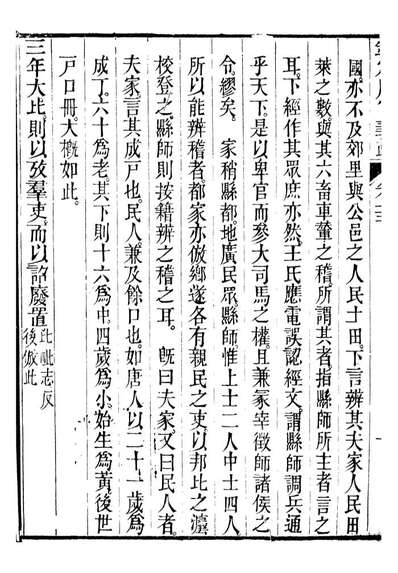 國亦不及郊里與公邑之人民土田下言辨其夫家人民田
萊之數與其六畜車輦之稽所謂其者指縣師所主者言之
耳下經作其眾庶亦然王氏應電誤認經文謂縣師調兵通
乎天下是以卑官而參大司馬之權且兼冢宰徵師諸侯之
令繆矣 家稍縣都地廣民眾縣師惟上士二人中士四人
所以能辨稽者都家亦倣鄉遂各有親民之吏以邦比之灋
校登之縣師則按籍辨之稽之耳 旣曰夫家又曰民人者
夫家言其成戸也民人兼及餘口也如唐人以二十一歲爲
成丁六十爲老其下則十六爲中四歲爲小始生爲黃後世
戸口冊大槪如此
三年大比則以攷羣吏而以詔廢置比毗志反後倣此